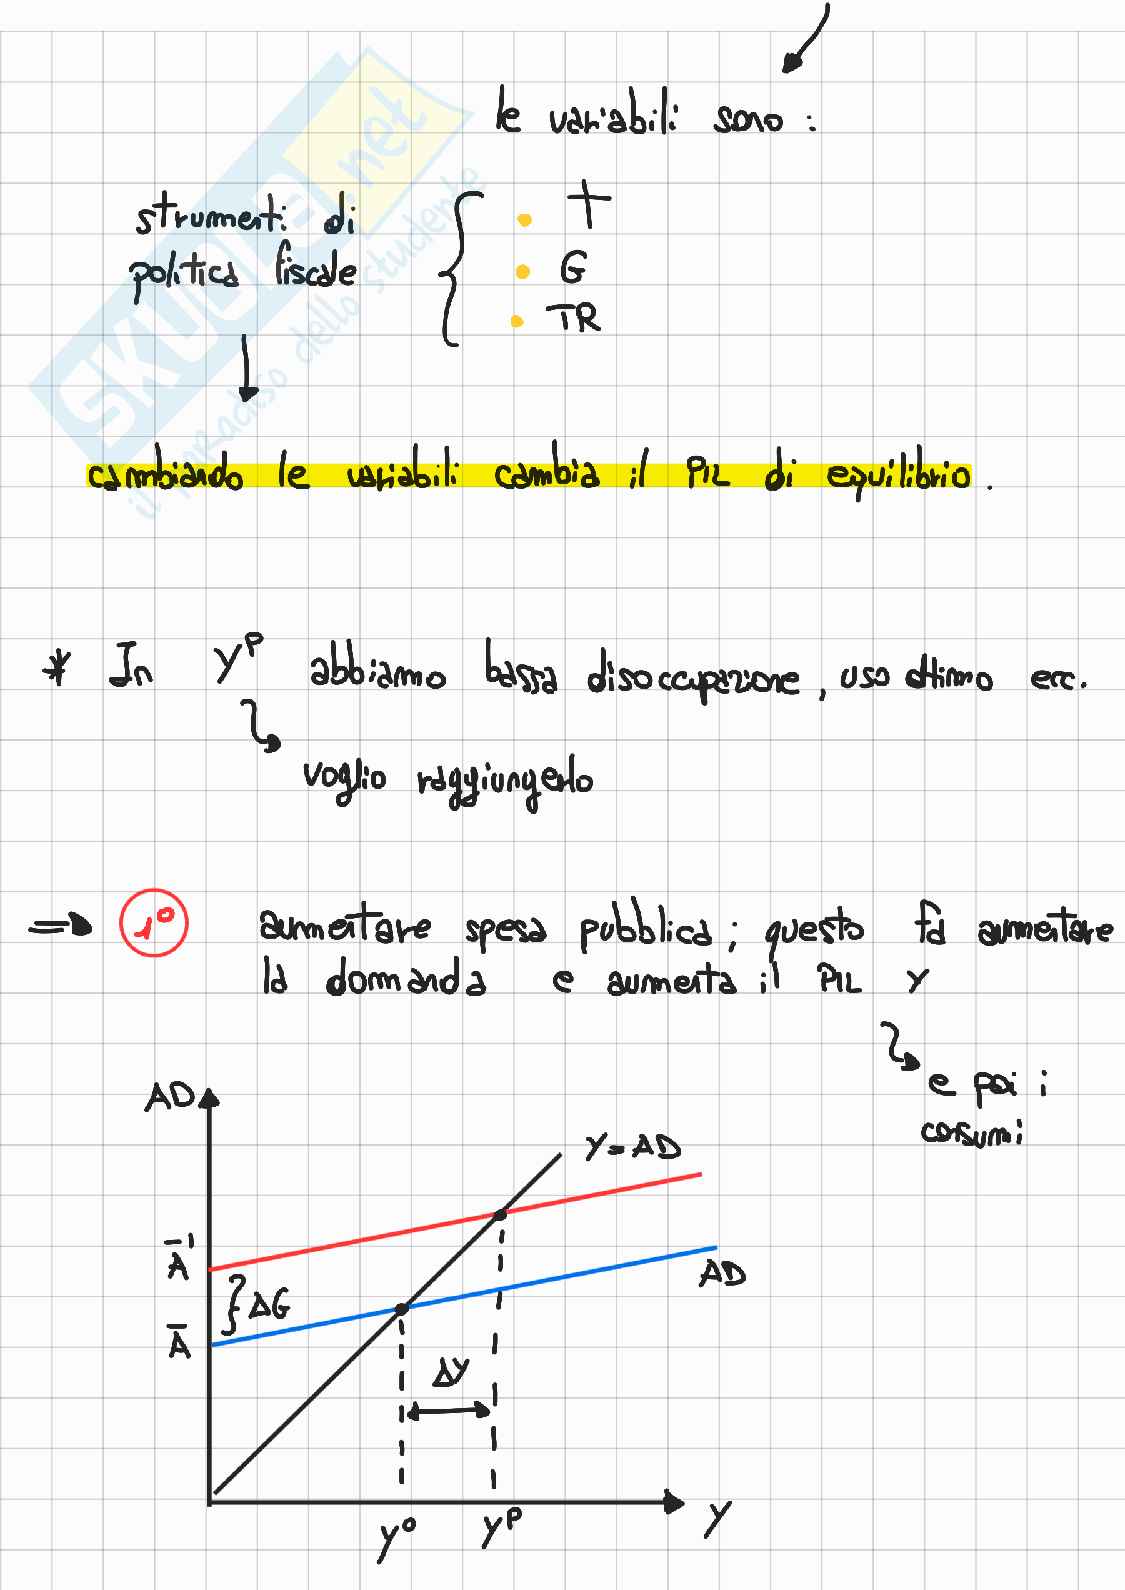 le variabili sono:
strumenti di
politica fiscale
• t
• G
• TR
cambiando le variabili cambia il PIL di equilibrio.
* In Yᴾ abbiamo bassa disoccupazione, uso ottimo ecc.
voglio raggiungerlo
⇒ 1° aumentare spesa pubblica; questo fa aumentare
la domanda e aumenta il PIL Y
e poi i
consumi
AD
Y=AD
A̅'
AD
ΔG
A̅
ΔY
Y⁰
Yᴾ
Y
SKUOLA.net
il paradiso dello studente